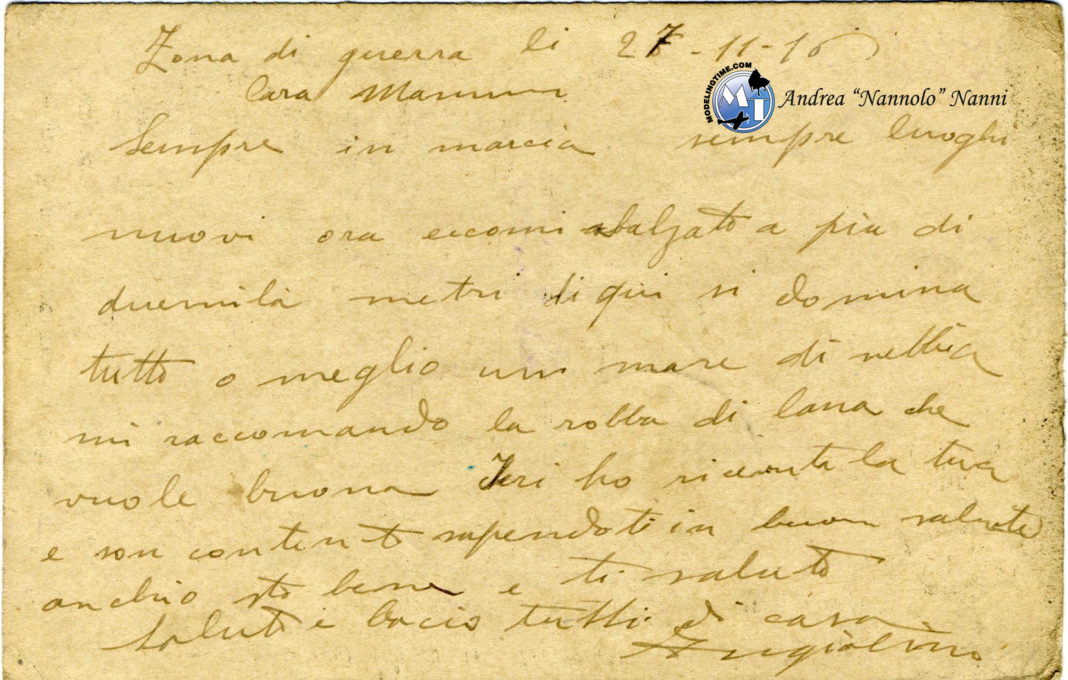 Zona di guerra li 27-11-16
Cara Mamma
MODELINGTIME.COM
MT
Andrea "Nannolo" Nanni
Sempre in marcia sempre luoghi
nuovi ora eccomi sbalzato a più di
duemila metri di qui si domina
tutto o meglio un mare di nebbia
mi raccomando la robba di lana che
vuole buona Ieri ho ricevuto la tua
e son content sapendoti in buon salute
anchio sto bene e ti saluto
saluti e bacio tutti di casa
Angiolino